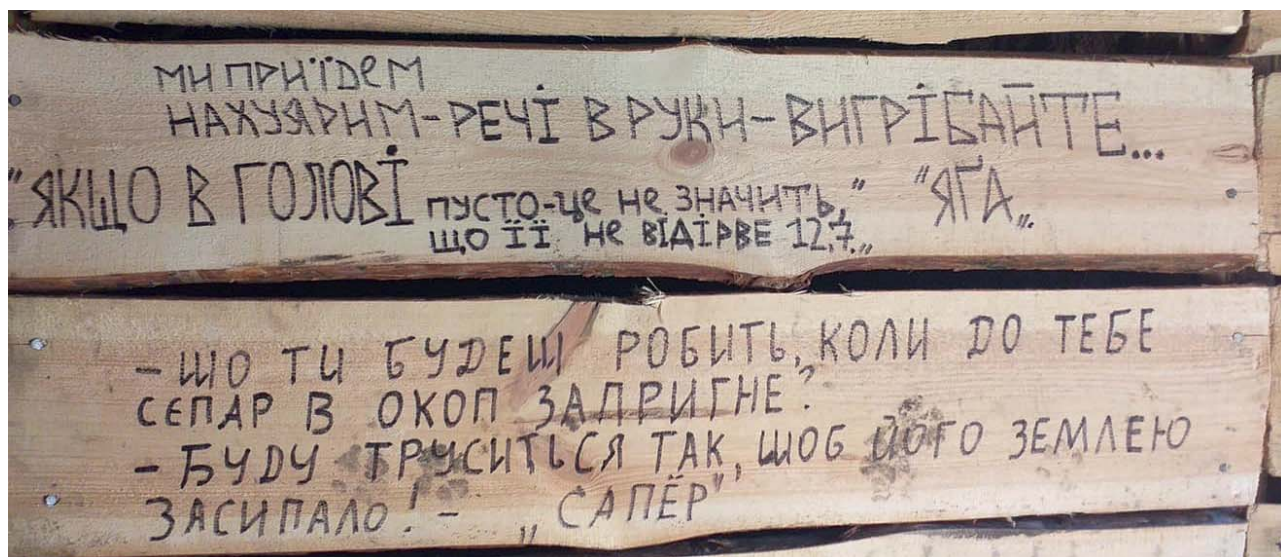 МИ ПРИЇДЕМ
НАХУЯРИМ-РЕЧІ В РУКИ-ВИГРІБАЙТЕ...
"ЯКЩО В ГОЛОВІ ПУСТО-ЦЕ НЕ ЗНАЧИТЬ," "ЯГА„
ЩО ЇЇ НЕ ВІДІРВЕ 12,7„
- ШО ТИ БУДЕШ РОБИТЬ, КОЛИ ДО ТЕБЕ
СЄПАР В ОКОП ЗАПРИГНЕ?
- БУДУ ТРУСИТЬСЯ ТАК, ШОБ ЙОГО ЗЕМЛЕЮ
ЗАСИПАЛО! - „САПЁР"